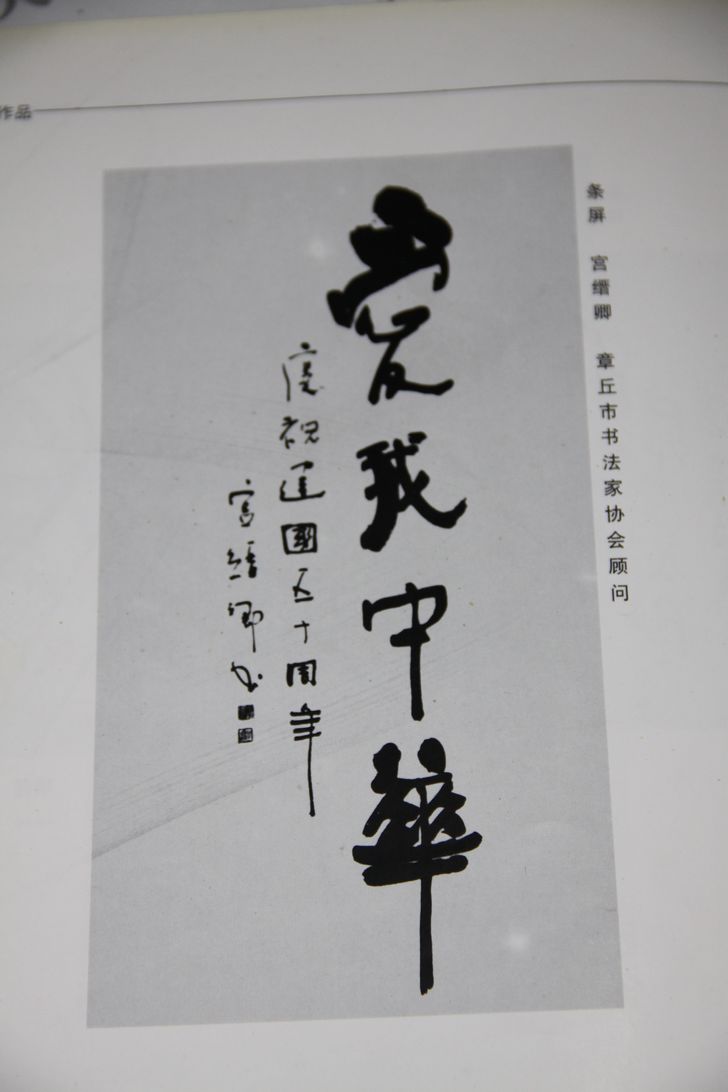 作品
条屏 宫缙卿 章丘市书法家协会顾问
愛我中華
慶祝建國五十周年
宫縉卿书